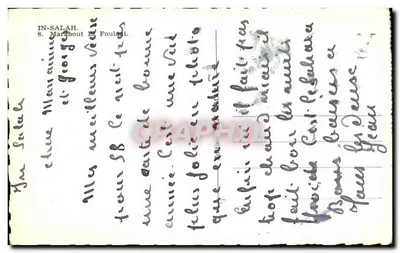 IN-SALAH.
8. Marabout Foulani.
In Salah
chère Marraine
et Georges
Mes meilleurs vœux
pour 58 Ce n'est pas
une carte de bonne
année. C'est une vue
plus jolie en photo
que
Enfin ici il fait pas
trop chaud
fait bon les nuits
froide C'est le Sahara
Bons baisers a
tous
Jean
CARTORUM